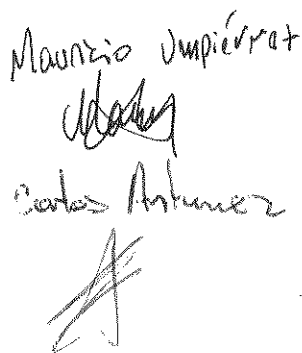 Mauricio Umpiérrez
Carlos Antunez